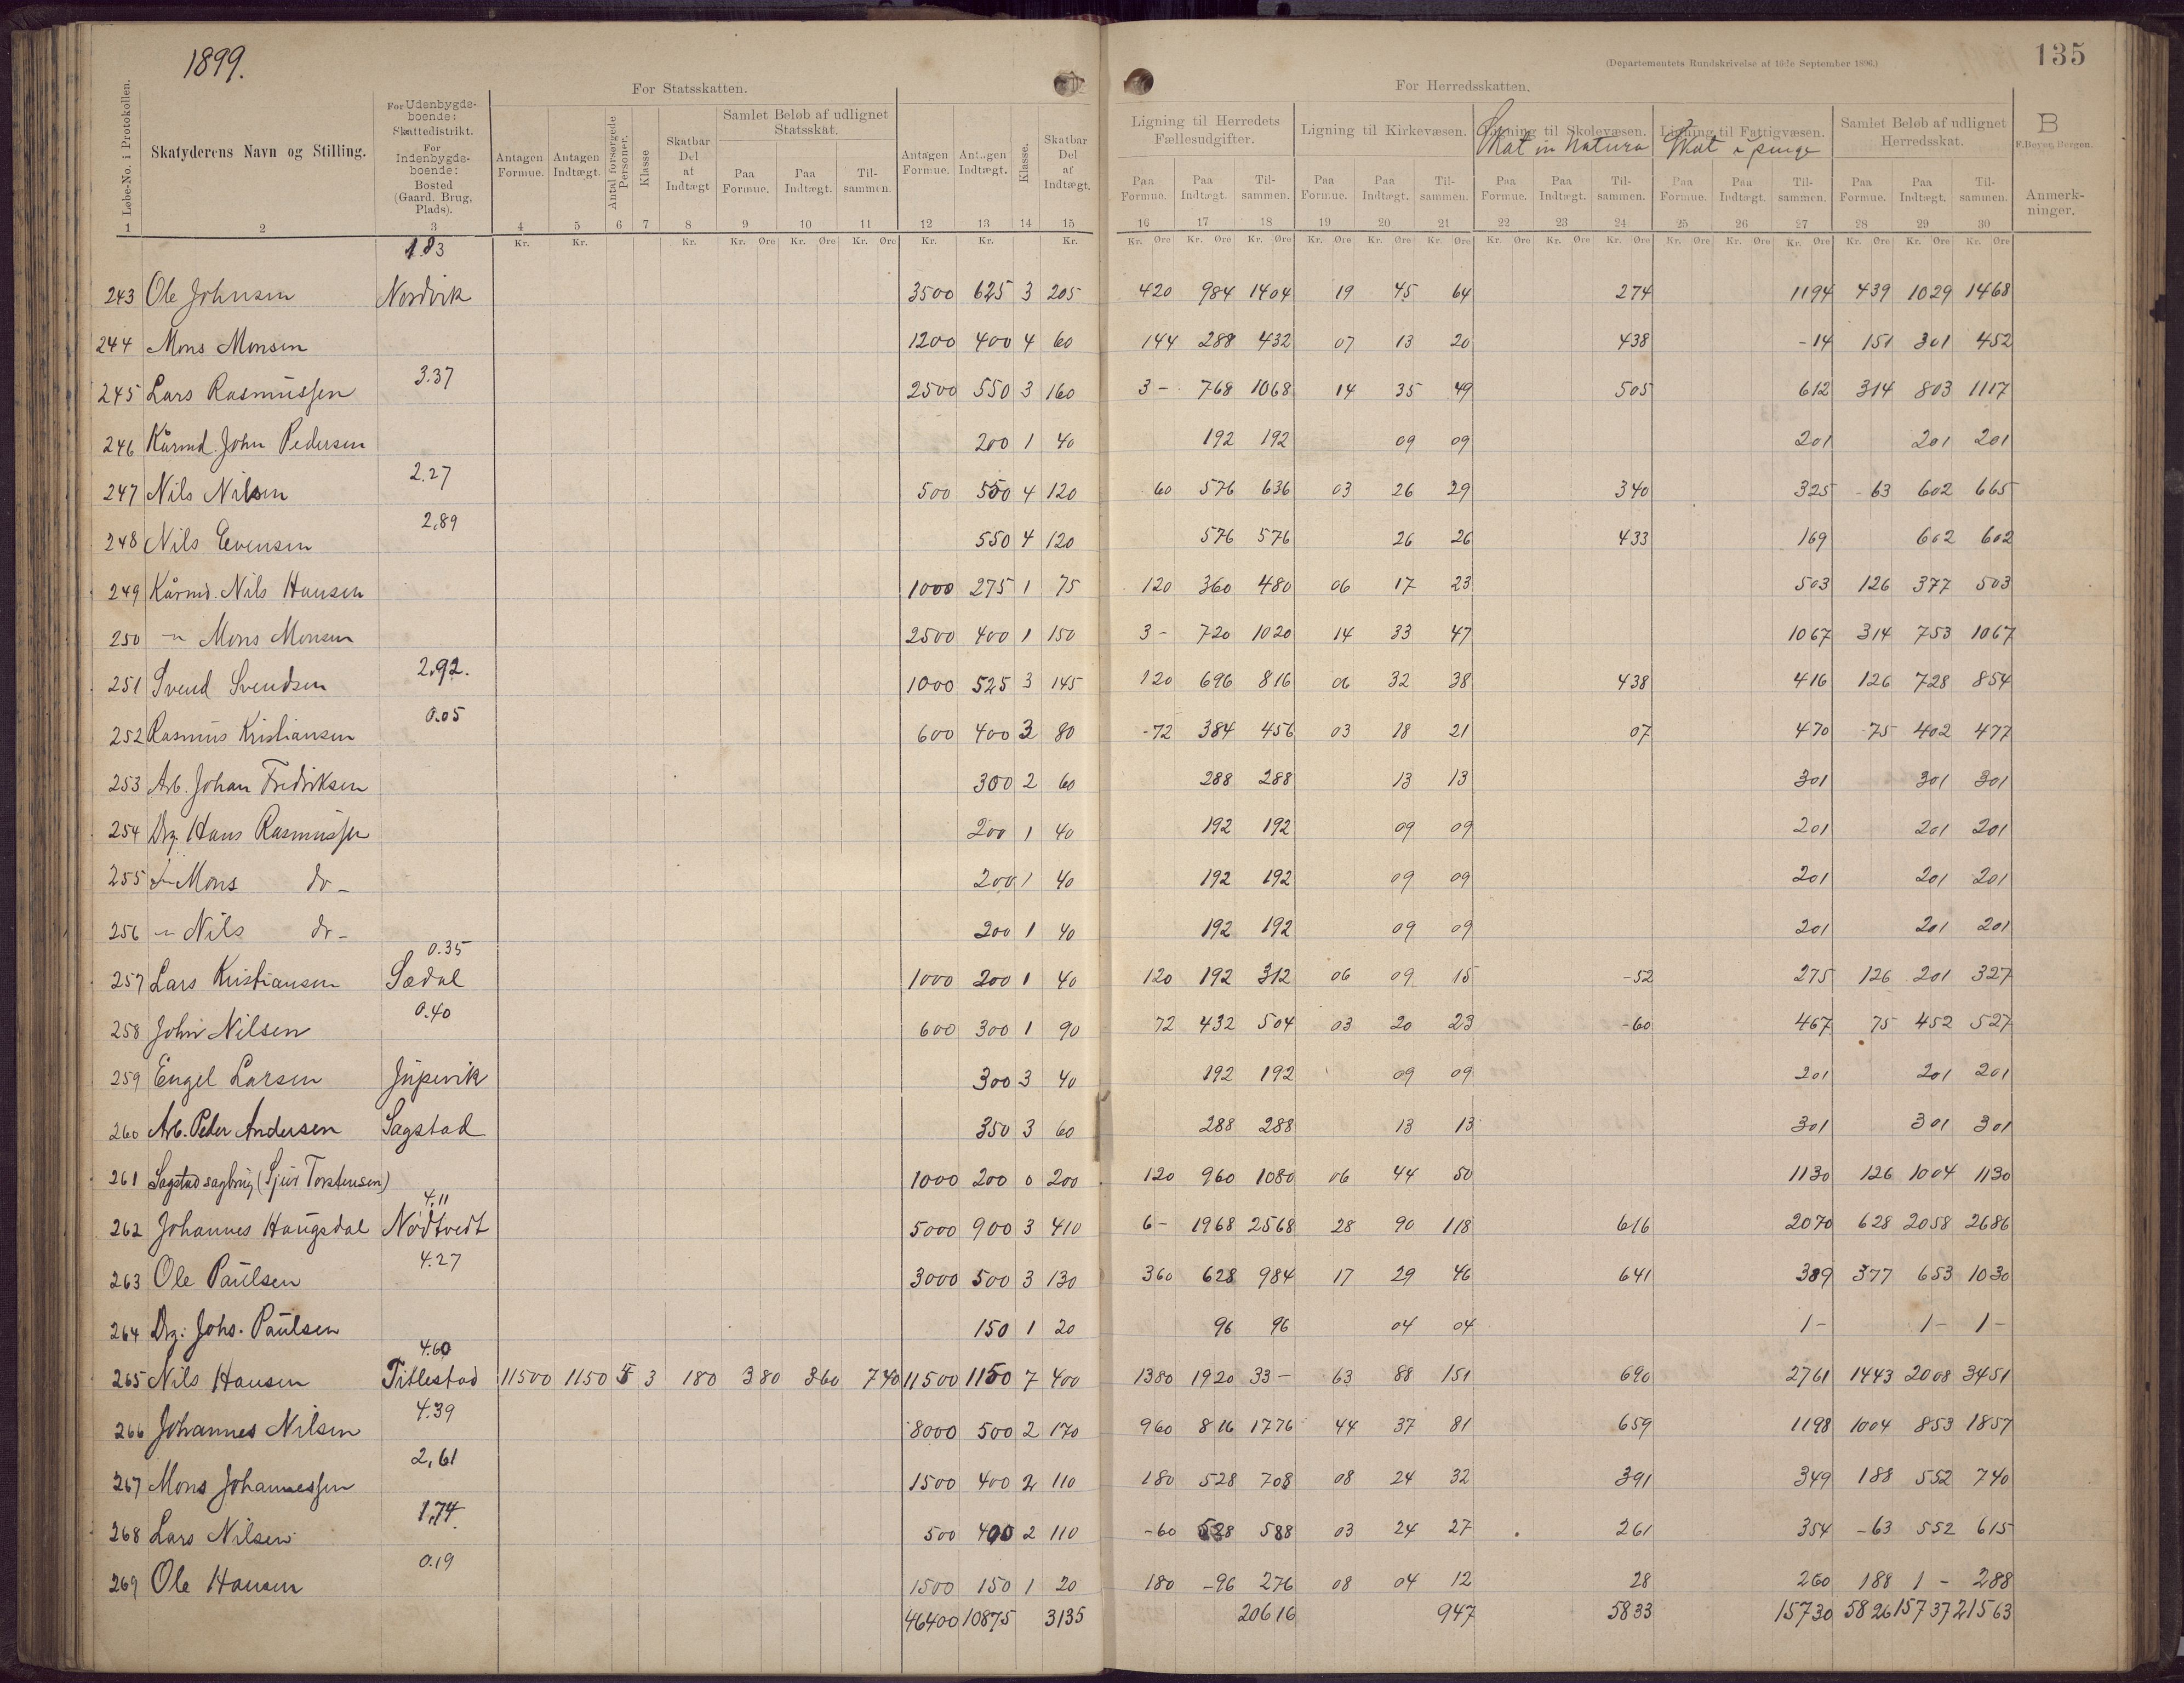 1899.
135
(Departementets Rundskrivelse af 16de September 1896.)
For Statsskatten.
For Herredsskatten.
1 Løbe-No. i Protokollen.
Skatyderens Navn og Stilling. 2
For Udenbygds-boende: Skattedistrikt. For Indenbygds-boende: Bosted (Gaard. Brug, Plads). 3
Antagen Formue. 4
Antagen Indtægt. 5
Antal forsørgede Personer. 6
Klasse 7
Skatbar Del af Indtægt 8
Samlet Beløb af udlignet Statsskat.
Paa Formue. 9
Paa Indtægt. 10
Til-sammen. 11
Antagen Formue. 12
Antagen Indtægt. 13
Klasse. 14
Skatbar Del af Indtægt. 15
Ligning til Herredets Fællesudgifter.
Paa Formue. 16
Paa Indtægt. 17
Til-sammen. 18
Ligning til Kirkevæsen.
Paa Formue. 19
Paa Indtægt. 20
Til-sammen. 21
Ligning til Skolevæsen.
Skat in natura
Paa Formue. 22
Paa Indtægt. 23
Til-sammen. 24
Ligning til Fattigvæsen.
Skat i penge
Paa Formue. 25
Paa Indtægt. 26
Til-sammen. 27
Samlet Beløb af udlignet Herredsskat.
Paa Formue. 28
Paa Indtægt. 29
Til-sammen. 30
B
F. Beyer, Bergen.
Anmerk-ninger.
Kr. Kr. Kr. Kr. Øre Kr. Øre Kr. Øre Kr. Kr. Kr. Kr. Øre Kr. Øre Kr. Øre Kr. Øre Kr. Øre Kr. Øre Kr. Øre Kr. Øre Kr. Øre Kr. Øre Kr. Øre Kr. Øre Kr. Øre Kr. Øre Kr. Øre
1.83
243 Ole Johnsen Nordvik 3500 625 3 205 420 984 1404 19 45 64 274 1194 439 1029 1468
244 Mons Monsen 1200 400 4 60 144 288 432 07 13 20 438 -14 151 301 452
3.37
245 Lars Rasmussen 2500 550 3 160 3- 768 1068 14 35 49 505 612 314 803 1117
246 Kårmd. John Pedersen 200 1 40 192 192 09 09 201 201 201
2.27
247 Nils Nilsen 500 550 4 120 60 576 636 03 26 29 340 325 -63 602 665
2,89
248 Nils Evensen 550 4 120 576 576 26 26 433 169 602 602
249 Kårmd. Nils Hansen 1000 275 1 75 120 360 480 06 17 23 503 126 377 503
250 -"- Mons Monsen 2500 400 1 150 3- 720 1020 14 33 47 1067 314 753 1067
2.92.
251 Svend Svendsen 1000 525 3 145 120 696 816 06 32 38 438 416 126 728 854
0.05
252 Rasmus Kristiansen 600 400 3 80 -72 384 456 03 18 21 07 470 75 402 477
253 Arb. Johan Fredriksen 300 2 60 288 288 13 13 301 301 301
254 Drg. Hans Rasmussen 200 1 40 192 192 09 09 201 201 201
255 -"- Mons do- 200 1 40 192 192 09 09 201 201 201
256 -"- Nils do- 200 1 40 192 192 09 09 201 201 201
0.35
257 Lars Kristiansen Sædal 1000 200 1 40 120 192 312 06 09 15 -52 275 126 201 327
0.40
258 John Nilsen 600 300 1 90 72 432 504 03 20 23 -60 467 75 452 527
259 Engel Larsen Jupevik 300 3 40 192 192 09 09 201 201 201
260 Arb. Peder Andersen Sagstad 350 3 60 288 288 13 13 301 301 301
261 Sagstad sagbrug (Sjur Torstensen) 1000 200 0 200 120 960 1080 06 44 50 1130 126 1004 1130
4,11
262 Johannes Haugsdal Nødtvedt 5000 900 3 410 6- 1968 2568 28 90 118 616 2070 628 2058 2686
4.27
263 Ole Paulsen 3000 500 3 130 360 628 984 17 29 46 641 389 377 653 1030
264 Drg: Johs. Paulsen 150 1 20 96 96 04 04 1- 1- 1-
4.60
265 Nils Hansen Titlestad 11500 1150 5 3 180 380 360 740 11500 1150 7 400 1380 1920 33- 63 88 151 690 2761 1443 2008 3451
4.39
266 Johannes Nilsen 8000 500 2 170 960 816 1776 44 37 81 659 1198 1004 853 1857
2,61
267 Mons Johannessen 1500 400 2 110 180 528 708 08 24 32 391 349 188 552 740
1,74.
268 Lars Nilsen 500 400 2 110 -60 528 588 03 24 27 261 354 -63 552 615
0.19
269 Ole Hansen 1500 150 1 20 180 -96 276 08 04 12 28 260 188 1- 288
46400 10875 3135 20616 947 5833 15730 5826 15737 21563